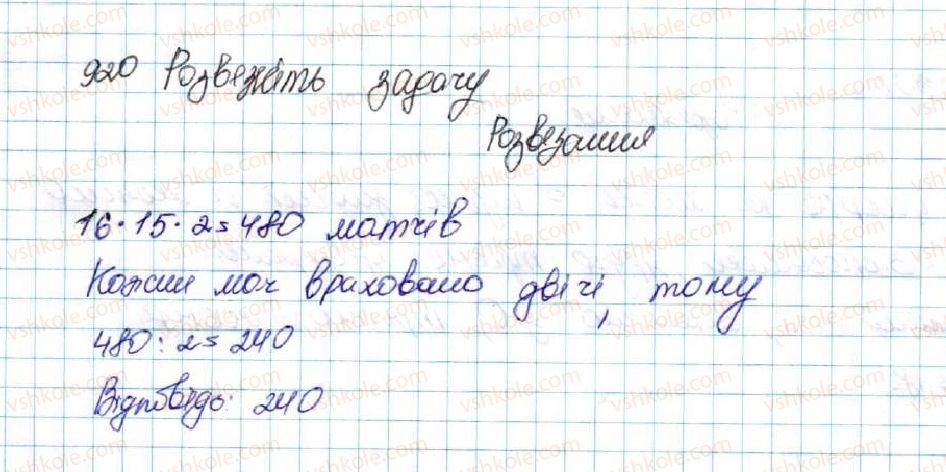 920 Розвежіть задачу
Розвезання
16·15·2=480 матчів
Кожин моч враховано двічі, тому
480:2=240
Відповідь: 240